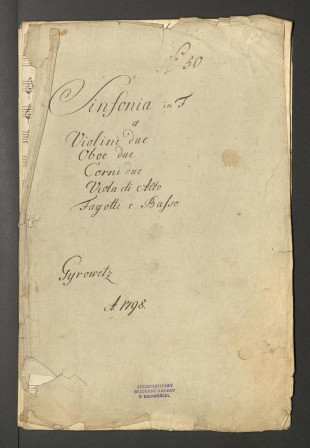 No 50
Sinfonia in F
a
Violini due
Oboe due
Corni due
Viola di Alto
Fagotti e Basso
Gyrowetz
A. 1798.
V KROMĚŘÍŽI